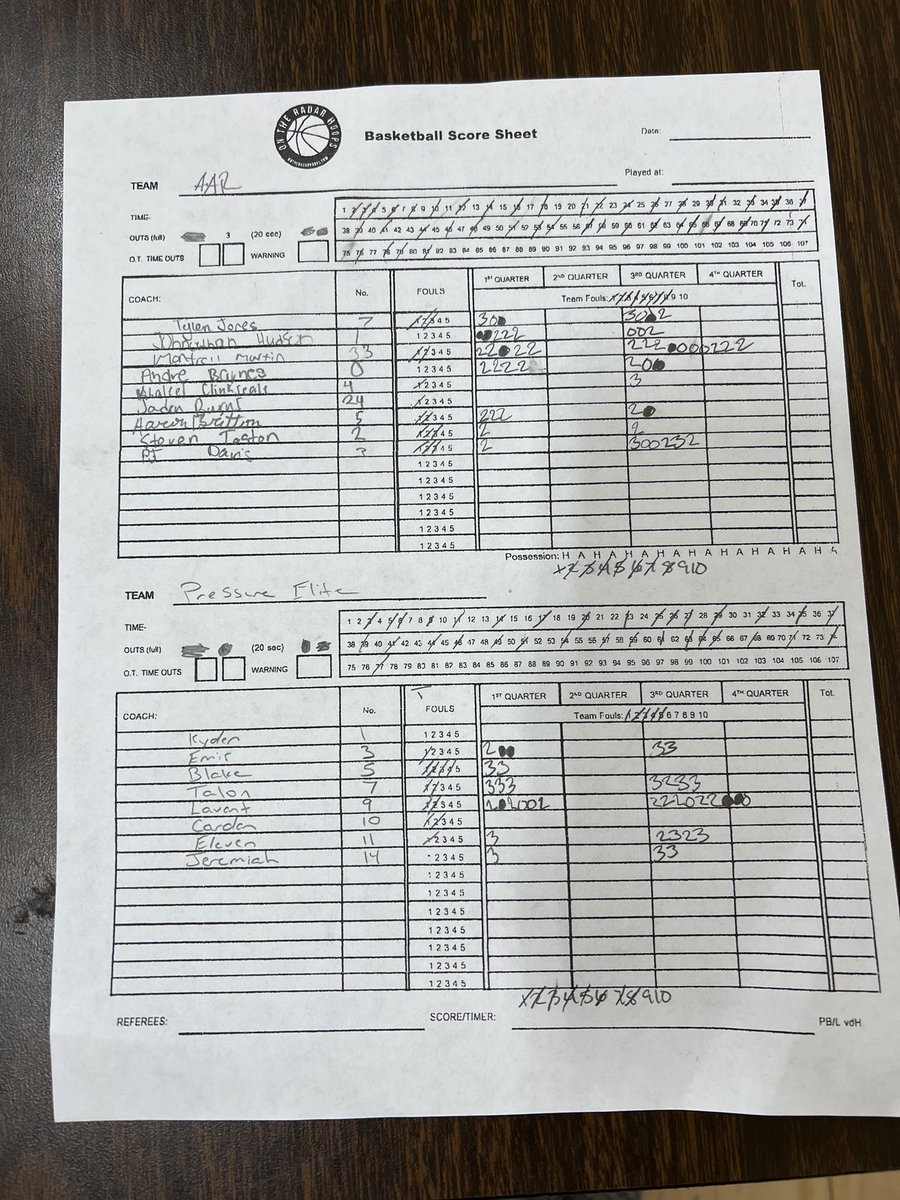 ON THE RADAR HOOPS
ONTHERADARHOOPS.COM
Basketball Score Sheet
Date:
Played at:
TEAM AAR
TIME-
OUTS (full) 3 (20 sec)
O.T. TIME OUTS WARNING
1 2 3 4 5 6 7 8 9 10 11 12 13 14 15 16 17 18 19 20 21 22 23 24 25 26 27 28 29 30 31 32 33 34 35 36 37
38 39 40 41 42 43 44 45 46 47 48 49 50 51 52 53 54 55 56 57 58 59 60 61 62 63 64 65 66 67 68 69 70 71 72 73 74
75 76 77 78 79 80 81 82 83 84 85 86 87 88 89 90 91 92 93 94 95 96 97 98 99 100 101 102 103 104 105 106 107
COACH: No. FOULS 1ST QUARTER 2ND QUARTER 3RD QUARTER 4TH QUARTER Tot.
Team Fouls: 1 2 3 4 5 6 7 8 9 10
Tylen Jones 7 1 2 3 4 5 30
Johnathan Hudson 1 1 2 3 4 5 222 002
Martrell Martin 33 1 2 3 4 5
Andre Baynes 0 1 2 3 4 5 2222
4 1 2 3 4 5 3
Jaden 24 1 2 3 4 5
Aaron Britton 5 1 2 3 4 5 222 2
Steven Toston 2 1 2 3 4 5 2 2
PJ Davis 3 1 2 3 4 5 2 300232
1 2 3 4 5
1 2 3 4 5
1 2 3 4 5
1 2 3 4 5
1 2 3 4 5
1 2 3 4 5
Possession: H A H A H A H A H A H A H A H A H A H A
1 2 3 4 5 6 7 8 9 10
TEAM Pressure Elite
TIME-
OUTS (full) (20 sec)
O.T. TIME OUTS WARNING
1 2 3 4 5 6 7 8 9 10 11 12 13 14 15 16 17 18 19 20 21 22 23 24 25 26 27 28 29 30 31 32 33 34 35 36 37
38 39 40 41 42 43 44 45 46 47 48 49 50 51 52 53 54 55 56 57 58 59 60 61 62 63 64 65 66 67 68 69 70 71 72 73 74
75 76 77 78 79 80 81 82 83 84 85 86 87 88 89 90 91 92 93 94 95 96 97 98 99 100 101 102 103 104 105 106 107
COACH: No. FOULS 1ST QUARTER 2ND QUARTER 3RD QUARTER 4TH QUARTER Tot.
Team Fouls: 1 2 3 4 5 6 7 8 9 10
Kyden 1 1 2 3 4 5
Emir 3 1 2 3 4 5 2 33
Blake 5 1 2 3 4 5 33
Talon 7 1 2 3 4 5 333 3233
Lavant 9 1 2 3 4 5
10 1 2 3 4 5
Eleven 11 1 2 3 4 5 3 2323
Jeremiah 14 1 2 3 4 5 3 33
1 2 3 4 5
1 2 3 4 5
1 2 3 4 5
1 2 3 4 5
1 2 3 4 5
1 2 3 4 5
1 2 3 4 5
1 2 3 4 5 6 7 8 9 10
REFEREES: SCORE/TIMER: PB/L vdH